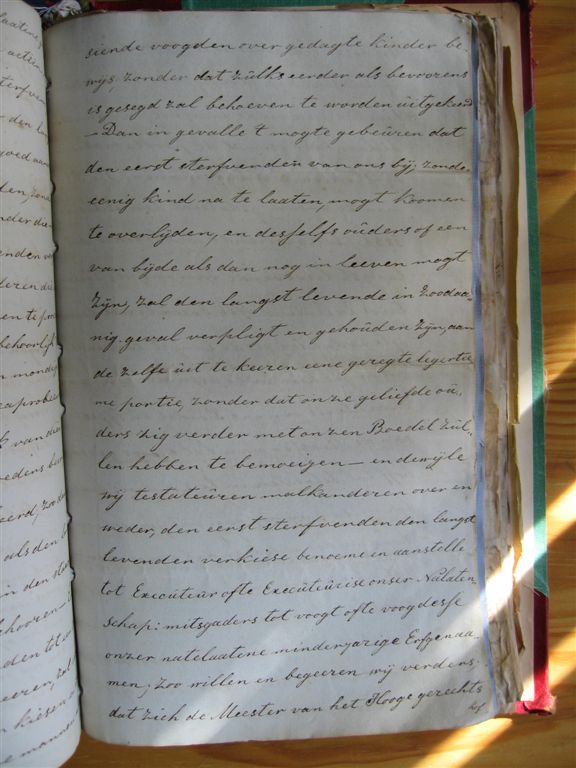 siende voogden over gedagte kinder be-
wijs, zonder dat zulks eerder als bevoorens
is gesegd zal behoeven te worden uitgekeerd
- Dan in gevalle 't mogte gebeuren dat
den eerst stervenden van ons bij, zonder
eenig kind na te laaten, mogt komen
te overlijden, en desselfs ouders of een
van bijde als dan nog in leeven mogt
zijn, zal den langst levende in zoodaa-
nig geval verpligt en gehouden zijn, aan
de zelfe uit te keeren eene geregte legertie
me portie, zonder dat onze geliefde ou-
ders zig verder met onzen Boedel zul-
len hebben te bemoeijen - en dewijle
wij testateuren malkanderen over en
weder, den eerst sterfvenden den langst
levenden verkiese benoeme en aanstelle
tot Executeur ofte Executeurise onser Nalaten
schap: mitsgaders tot voogt ofte voogdesse
onzer natelaatene minderjarige Erfgenaa-
men; zoo willen en begeeren wij verders,
dat zich de Meester van het Hooge gerechts
hof